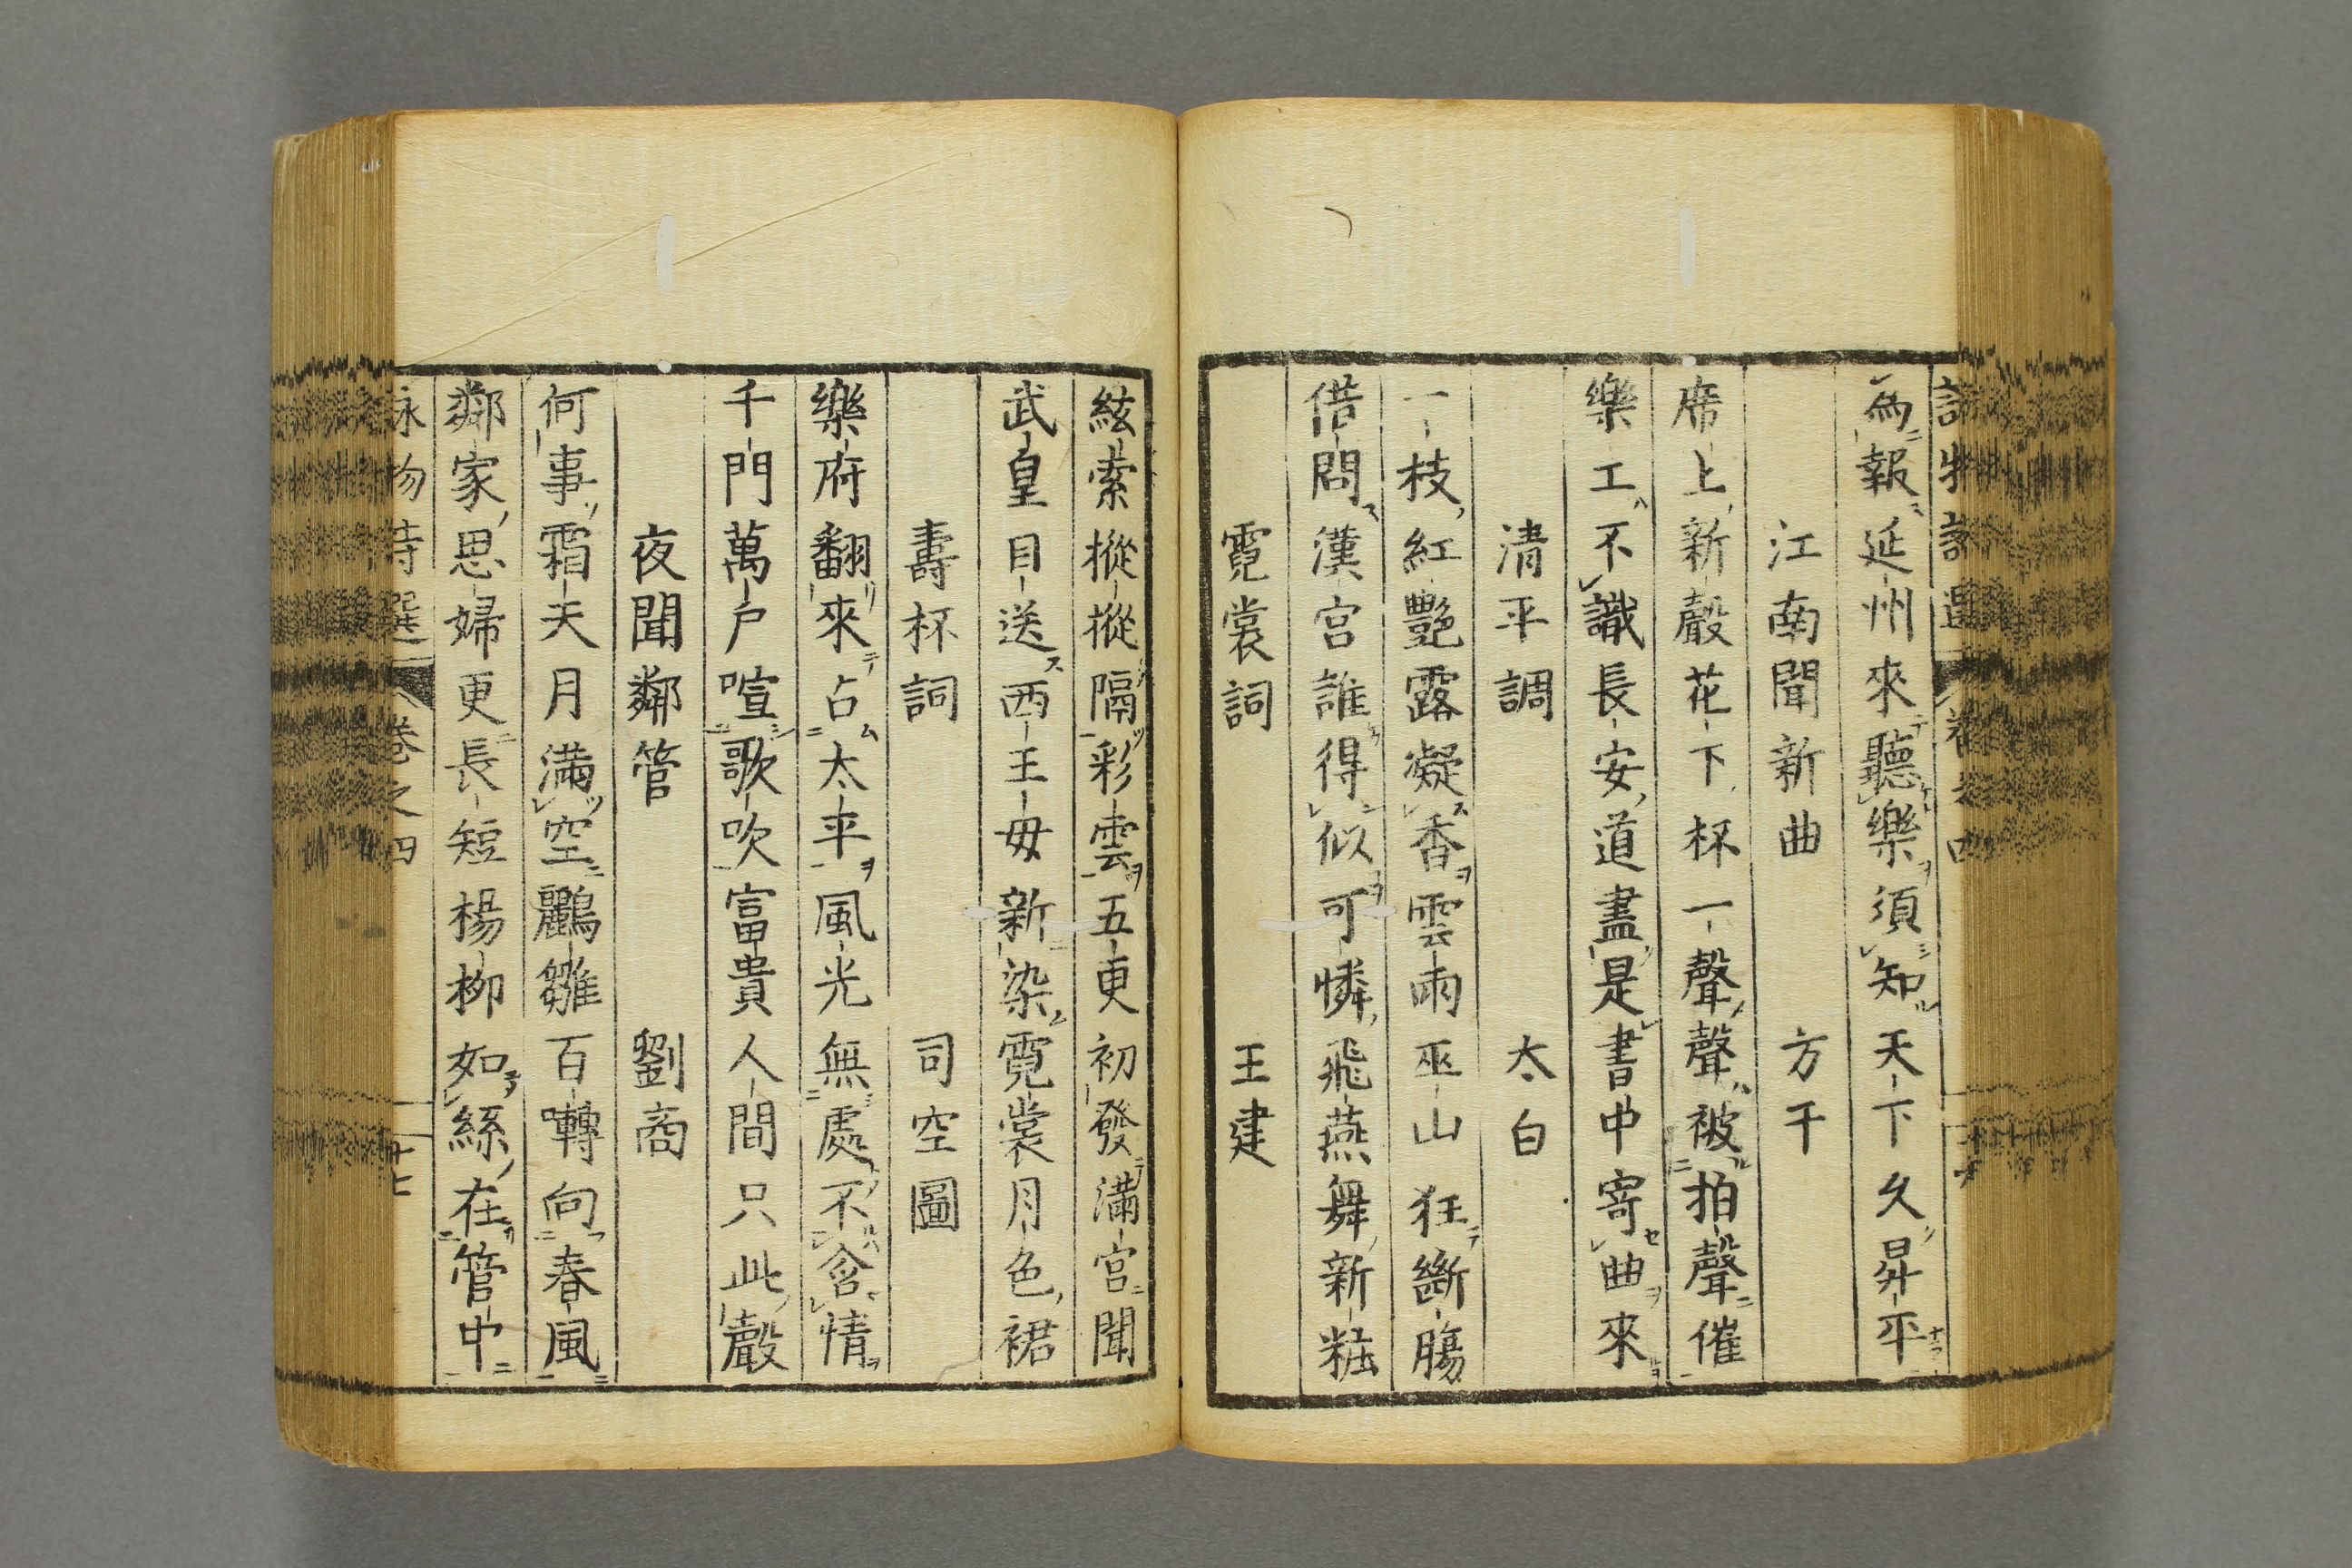 為報延州來聽樂須知天下久昇平
江南聞新曲 方干
席上新聲花下杯一聲聲被拍聲催
樂工不識長安道盡是書中寄曲來
清平調 太白
一枝紅艷露凝香雲雨巫山狂斷膓
借問漢宮誰得似可憐飛燕舞新粧
霓裳詞 王建
絃索摐摐隔彩雲五更初發滿宮聞
武皇目送西王毋新染霓裳月色裙
壽杯詞 司空圖
樂府翻來占太平風光無處不含情
千門萬戶喧歌吹富貴人間只此聲
夜聞鄰管 劉商
何事霜天月滿空鸝雛百囀向春風
鄰家思婦更長短楊柳如絲在管中
詠物詩選 卷之四 十七